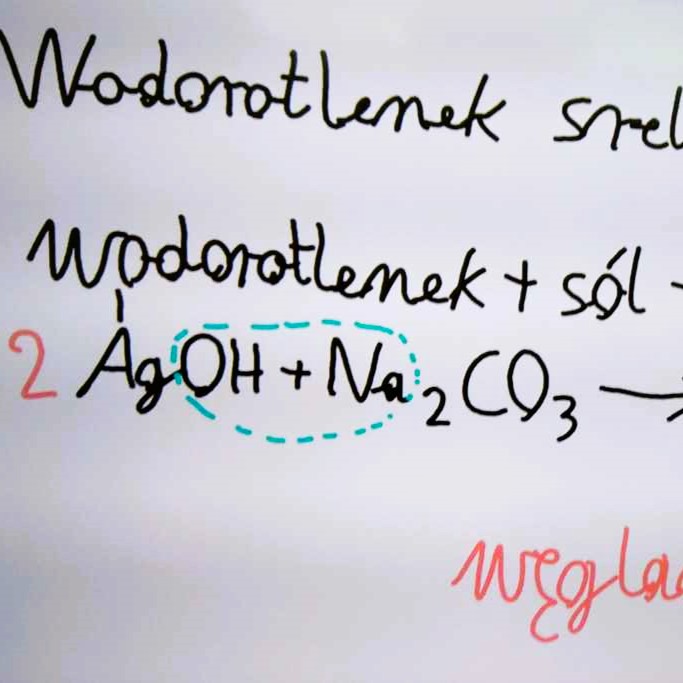 Wodorotlenek srel
Wodorotlenek + sól -
I
2 AgOH + Na₂CO₃ →
węgla